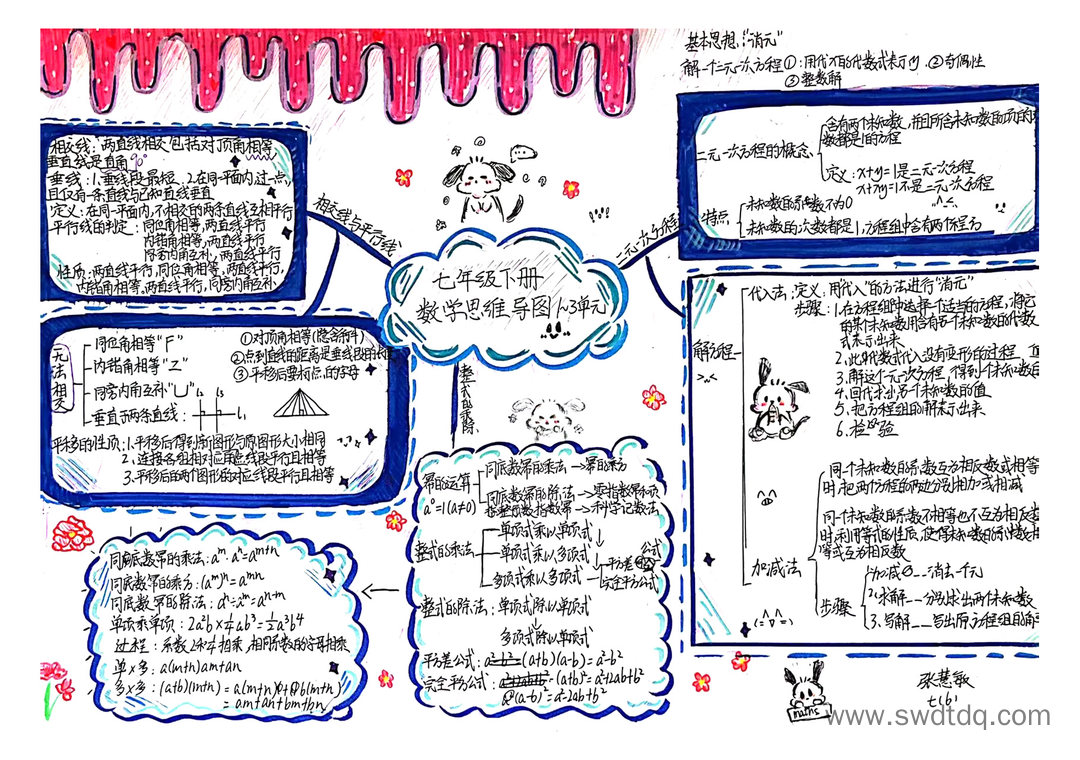 基本思想:"消元"
解一个二元一次方程①:用代x的代数式表示y.②奇偶性
③整数解
相交线:两直线相交包括对顶角相等
垂直线是直角90°
垂线:1.垂线段最短.2.在同一平面内过一点,
且仅有一条直线与已知直线垂直
定义:在同一平面内,不相交的两条直线互相平行
平行线的判定:同位角相等,两直线平行
内错角相等,两直线平行
同旁内角互补,两直线平行
性质:两直线平行,同位角相等,两直线平行,
内错角相等,两直线平行,同旁内角互补.
相交线与平行线
无法相交
同位角相等"F"
内错角相等"Z"
同旁内角互补"凵"
垂直于两条直线:
①对顶角相等(隐含条件)
②点到直线的距离是垂线段的长
③平移后要标点的字母
平移的性质:1.平移后得到新图形与原图形大小相同
2.连接各组相对应点线段平行且相等
3.平移后的两个图形的对应线段平行且相等
七年级下册
数学思维导图1~3单元
二元一次方程
二元一次方程的概念
含有两个未知数,并且所含未知数的项的
数都是1的方程
定义:x+y=1是二元一次方程
x+xy=1不是二元一次方程
特点
未知数的系数不为0
未知数的次数都是1,方程组中含有两个方程
解方程
代入法:定义:用代入"的方法进行"消元"
步骤:1.在方程组中选择一个适当的方程,将它
的某个未知数用含有另一个未知数的代数
式表示出来
2.此代数式代入没有变形的过程
3.解这个一元一次方程,得到一个未知数
4.回代求出另一个未知数的值
5.把方程组的解表示出来
6.检验
加减法
同一个未知数的系数互为相反数或相等
时,把两个方程的两边分别相加或相减
同一个未知数的系数不相等也不互为相反数
时,利用等式的性质,使得未知数的系数相
等或互为相反数
步骤
加减__消去一个元
2.求解__分别求出两个未知数
3.写解__写出原方程组的解
整式的乘除
幂的运算
a⁰=1(a≠0)
同底数幂的乘法→幂的乘方
同底数幂的除法→零指数幂
指数幂→科学记数法
整式的乘法
单项式乘以单项式
单项式乘以多项式
多项式乘以多项式
平方差公式
完全平方公式
整式的除法:单项式除以单项式
多项式除以单项式
平方差公式:(a+b)(a-b)=a²-b²
完全平方公式:(a+b)²=a²+2ab+b²
(a-b)²=a²-2ab+b²
同底数幂的乘法:aᵐ·aⁿ=aᵐ⁺ⁿ
同底数幂的乘方:(aᵐ)ⁿ=aᵐⁿ
同底数幂的除法:aⁿ÷aᵐ=aⁿ⁺ᵐ
单项乘单项:2a²b×¼ab³=½a³b⁴
过程:系数2×¼相乘,相同系数的字母相乘
单×多:a(m+n)am+an
多×多:(a+b)(m+n)=a(m+n)+b(m+n)
=am+an+bm+bn
张慧敏
七(6)
maths
www.swdtdq.com